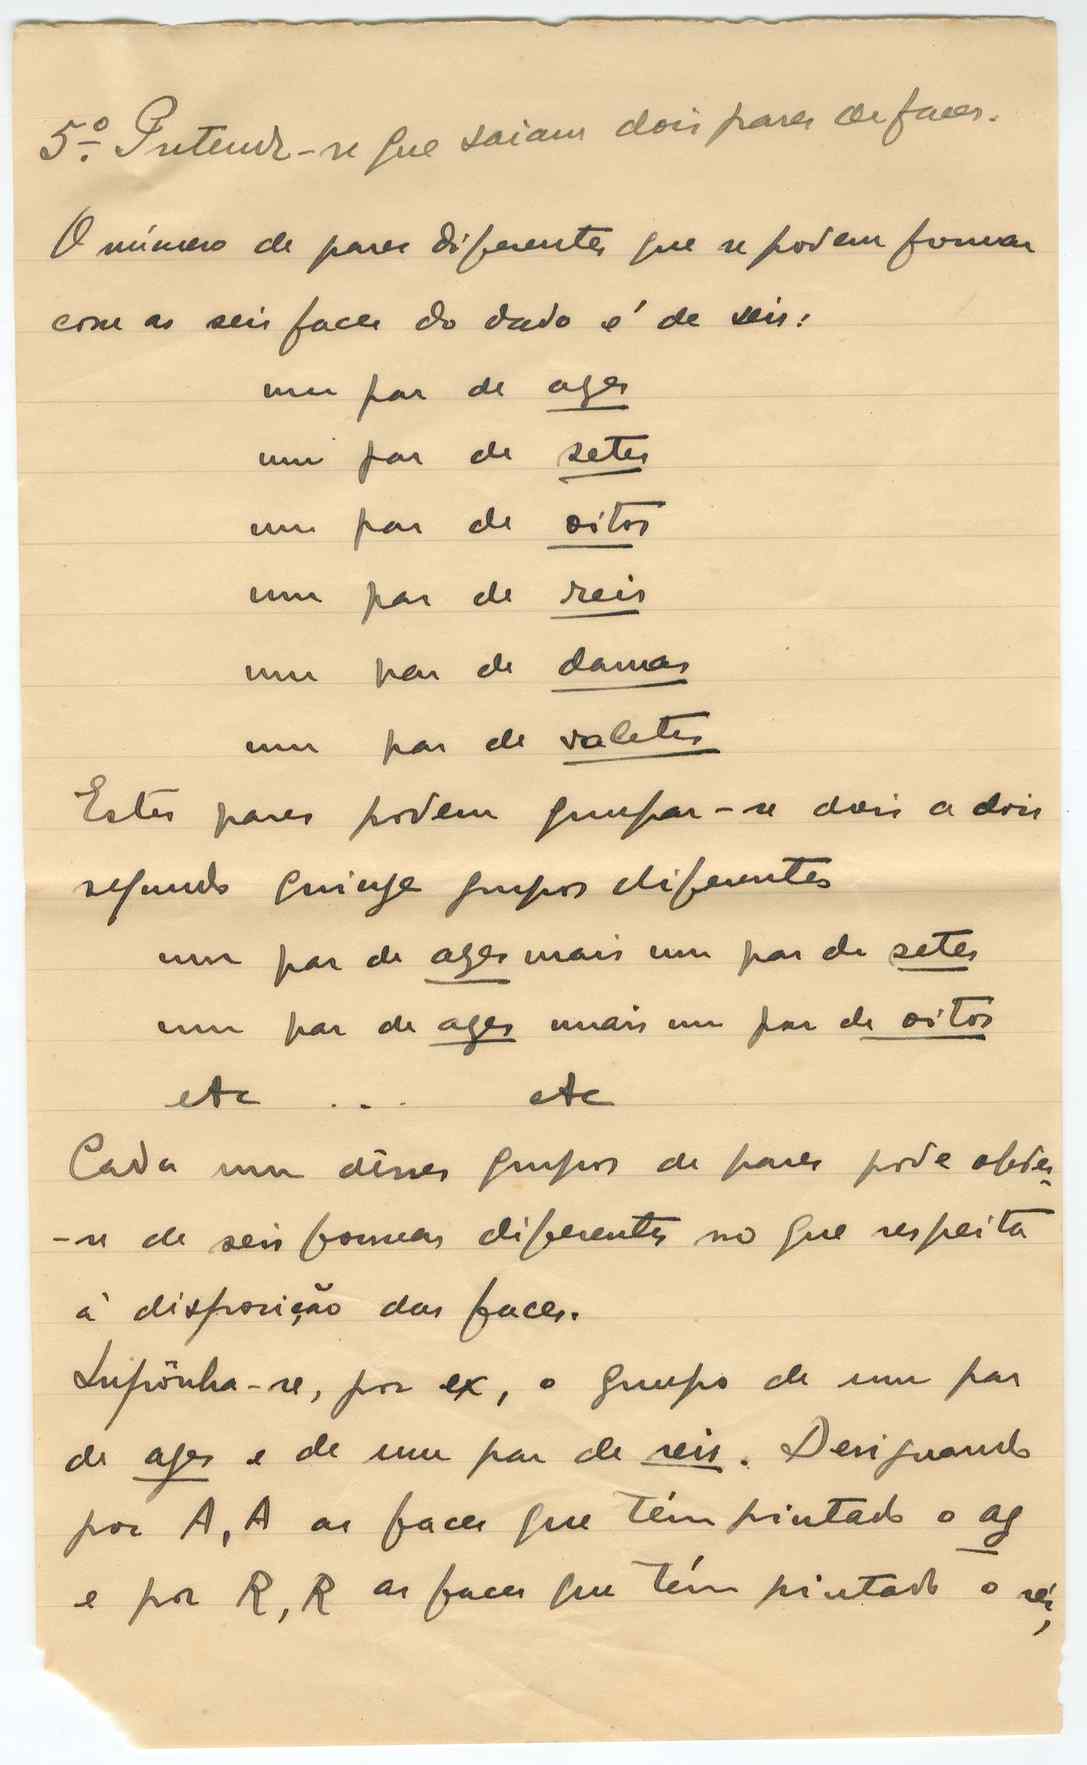 5.º Pretende-se que saiam dois pares de faces.
O número de pares diferentes que se podem formar
com as seis faces do dado é de seis:
um par de azes
um par de setes
um par de oitos
um par de reis
um par de damas
um par de valetes
Estes pares podem grupar-se dois a dois
segundo quinze grupos diferentes
um par de azes mais um par de setes
um par de azes mais um par de oitos
etc ... etc
Cada um dêsses grupos de pares pode obter-
-se de seis formas diferentes no que respeita
à disposição das faces.
Suponha-se, por ex, o grupo de um par
de azes e de um par de reis. Designando
por A, A as faces que têm pintado o az
e por R, R as faces que têm pintado o rei,